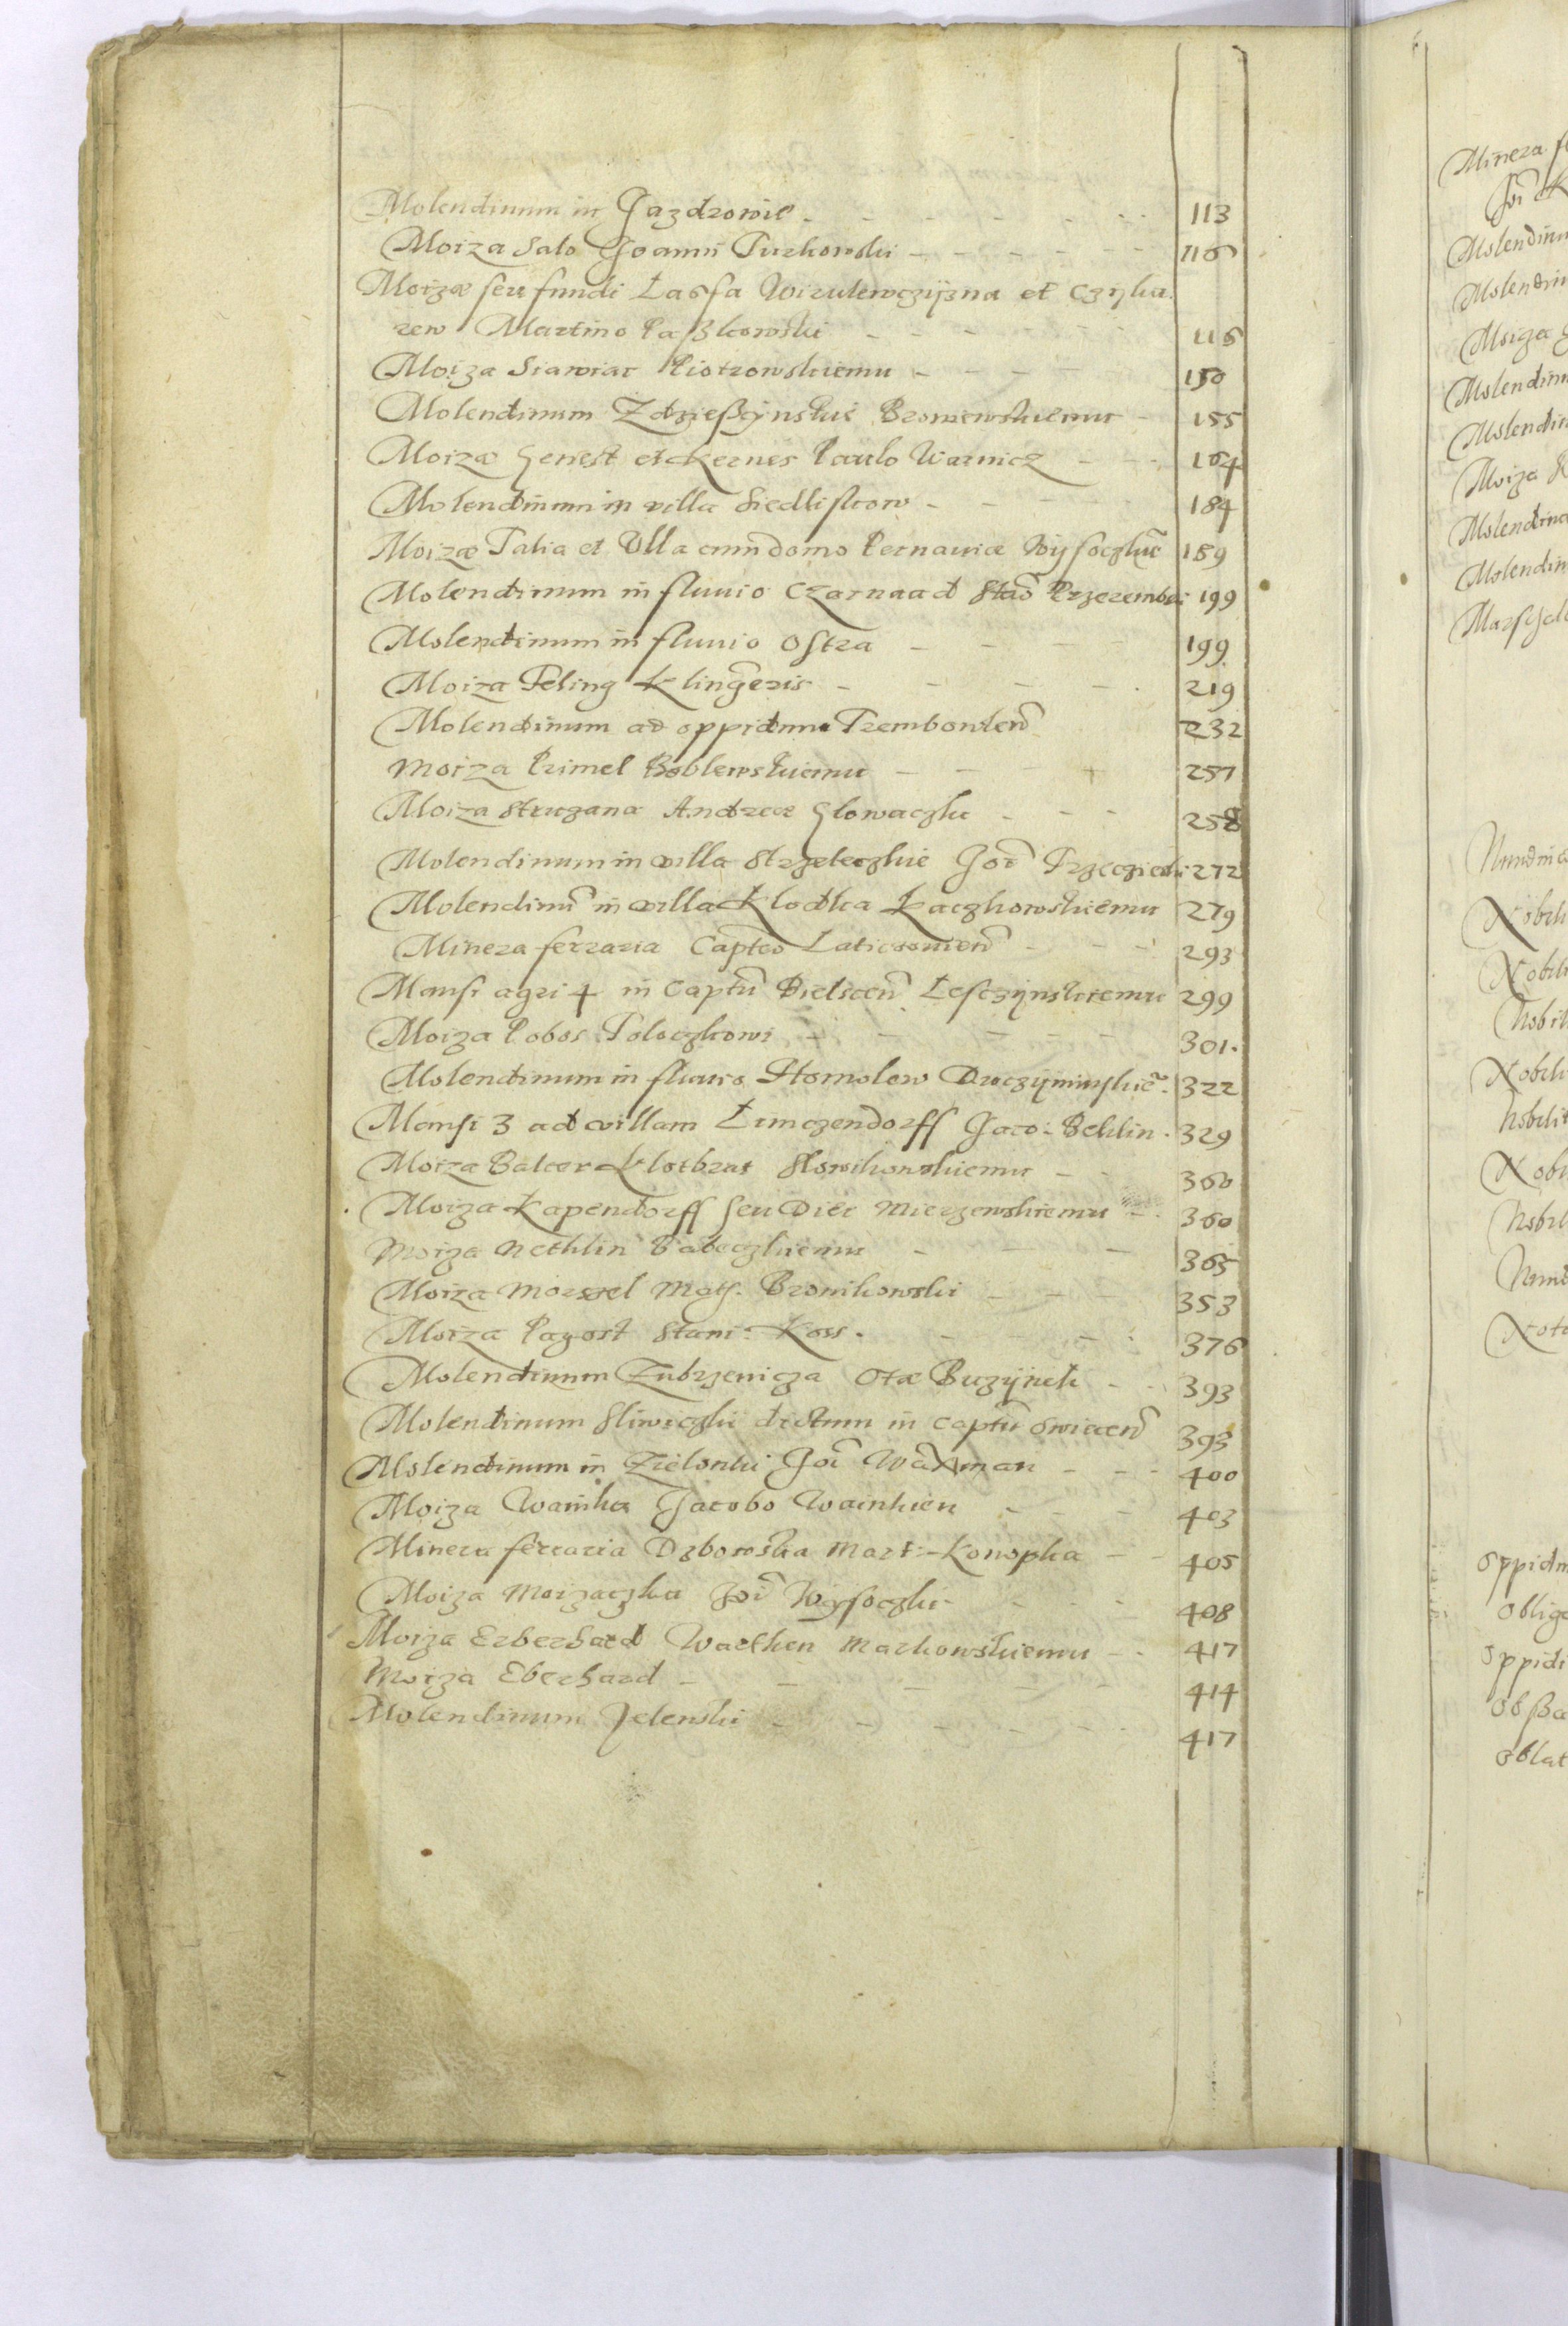 Molendinum in Jazdrowie - - - - - - 113
Moiza Salo Joanni Turkowski - - - - - 116
Moizæ seu fundi Lassa Wirulewczÿzna et Czyka
rew Martino Paßkowski - - - - - 116
Moiza Siawiar Piotrowskiemu - - - - 150
Molendinum Zdzießÿnskie Broniewskiemu - 155
Moizæ Henest et Kernes Paulo Warnicz - - - 164
Molendinum in villa Siedliskow - - - - 184
Moizæ Talia et Ulla cum domo Pernauiæ Wÿsoczkie 189
Molendinum in fluuio Czarna ad Stao Przerembsi 199
Molendinum in fluuio Ostra - - - - 199
Moiza Feling Klingeris - - - - 219
Molendinum ad oppidum Trembowlen 232
Moiza Primel Boblewskiemu - - - - 257
Moiza Strugana Andreæ Głowaczki - - - 258
Molendinum in villa Strzeleczkie Joi Trzeczieski 272
Molendinu in villa Klodka Kaczkowskiemu 279
Minera ferraria Capteo Laticouien - - - 293
Mansi agri 4 in Captu Bielscen Lesczÿnskiemu 299
Moiza Pobos Poloczkowi - - - - 301.
Molendinum in fluuio Homolew Druczÿminskie - 322
Mansi 3 ad villam Limczendorff Jaco: Behlin. 329
Moiza Balcer Klotbrat Słowikowskiemu - - 360
Moiza Kapendorff seu Dier Mierzewskiemu - 360
Moiza Nethlin Bateczkiemu - - - 365
Moiza Morsel Math. Bronikowski - - - 353
Moiza Pagost Stani: Koss. - - - 376
Molendinum Zubrzenicza Otæ Buczÿnsk - - 393
Molendinum Sliwiczki dictum in captu Swiecen 393
Molendinum in Zielonki Joi Waxman - - - 400
Moiza Wainka Jacobo Wainkien - - - 403
Minera ferraria Dzbowska Mart:- Konopka - - 405
Moiza Moizaczka Joi Wysoczki - - - 408
Moiza Erberhard Waethen Markowskiemu - - 417
Moiza Eberhard - - - - - 414
Molendinum Jelenski - - - - - 417
Minera
Molendinu
Molendin
Moiza
Molendinu
Molendin
Moiza
Molendinu
Molendin
Nobili
Nobili
Nobili
Nobili
Nobilit
Oppidu
Oblig
Oppidi
Oblat